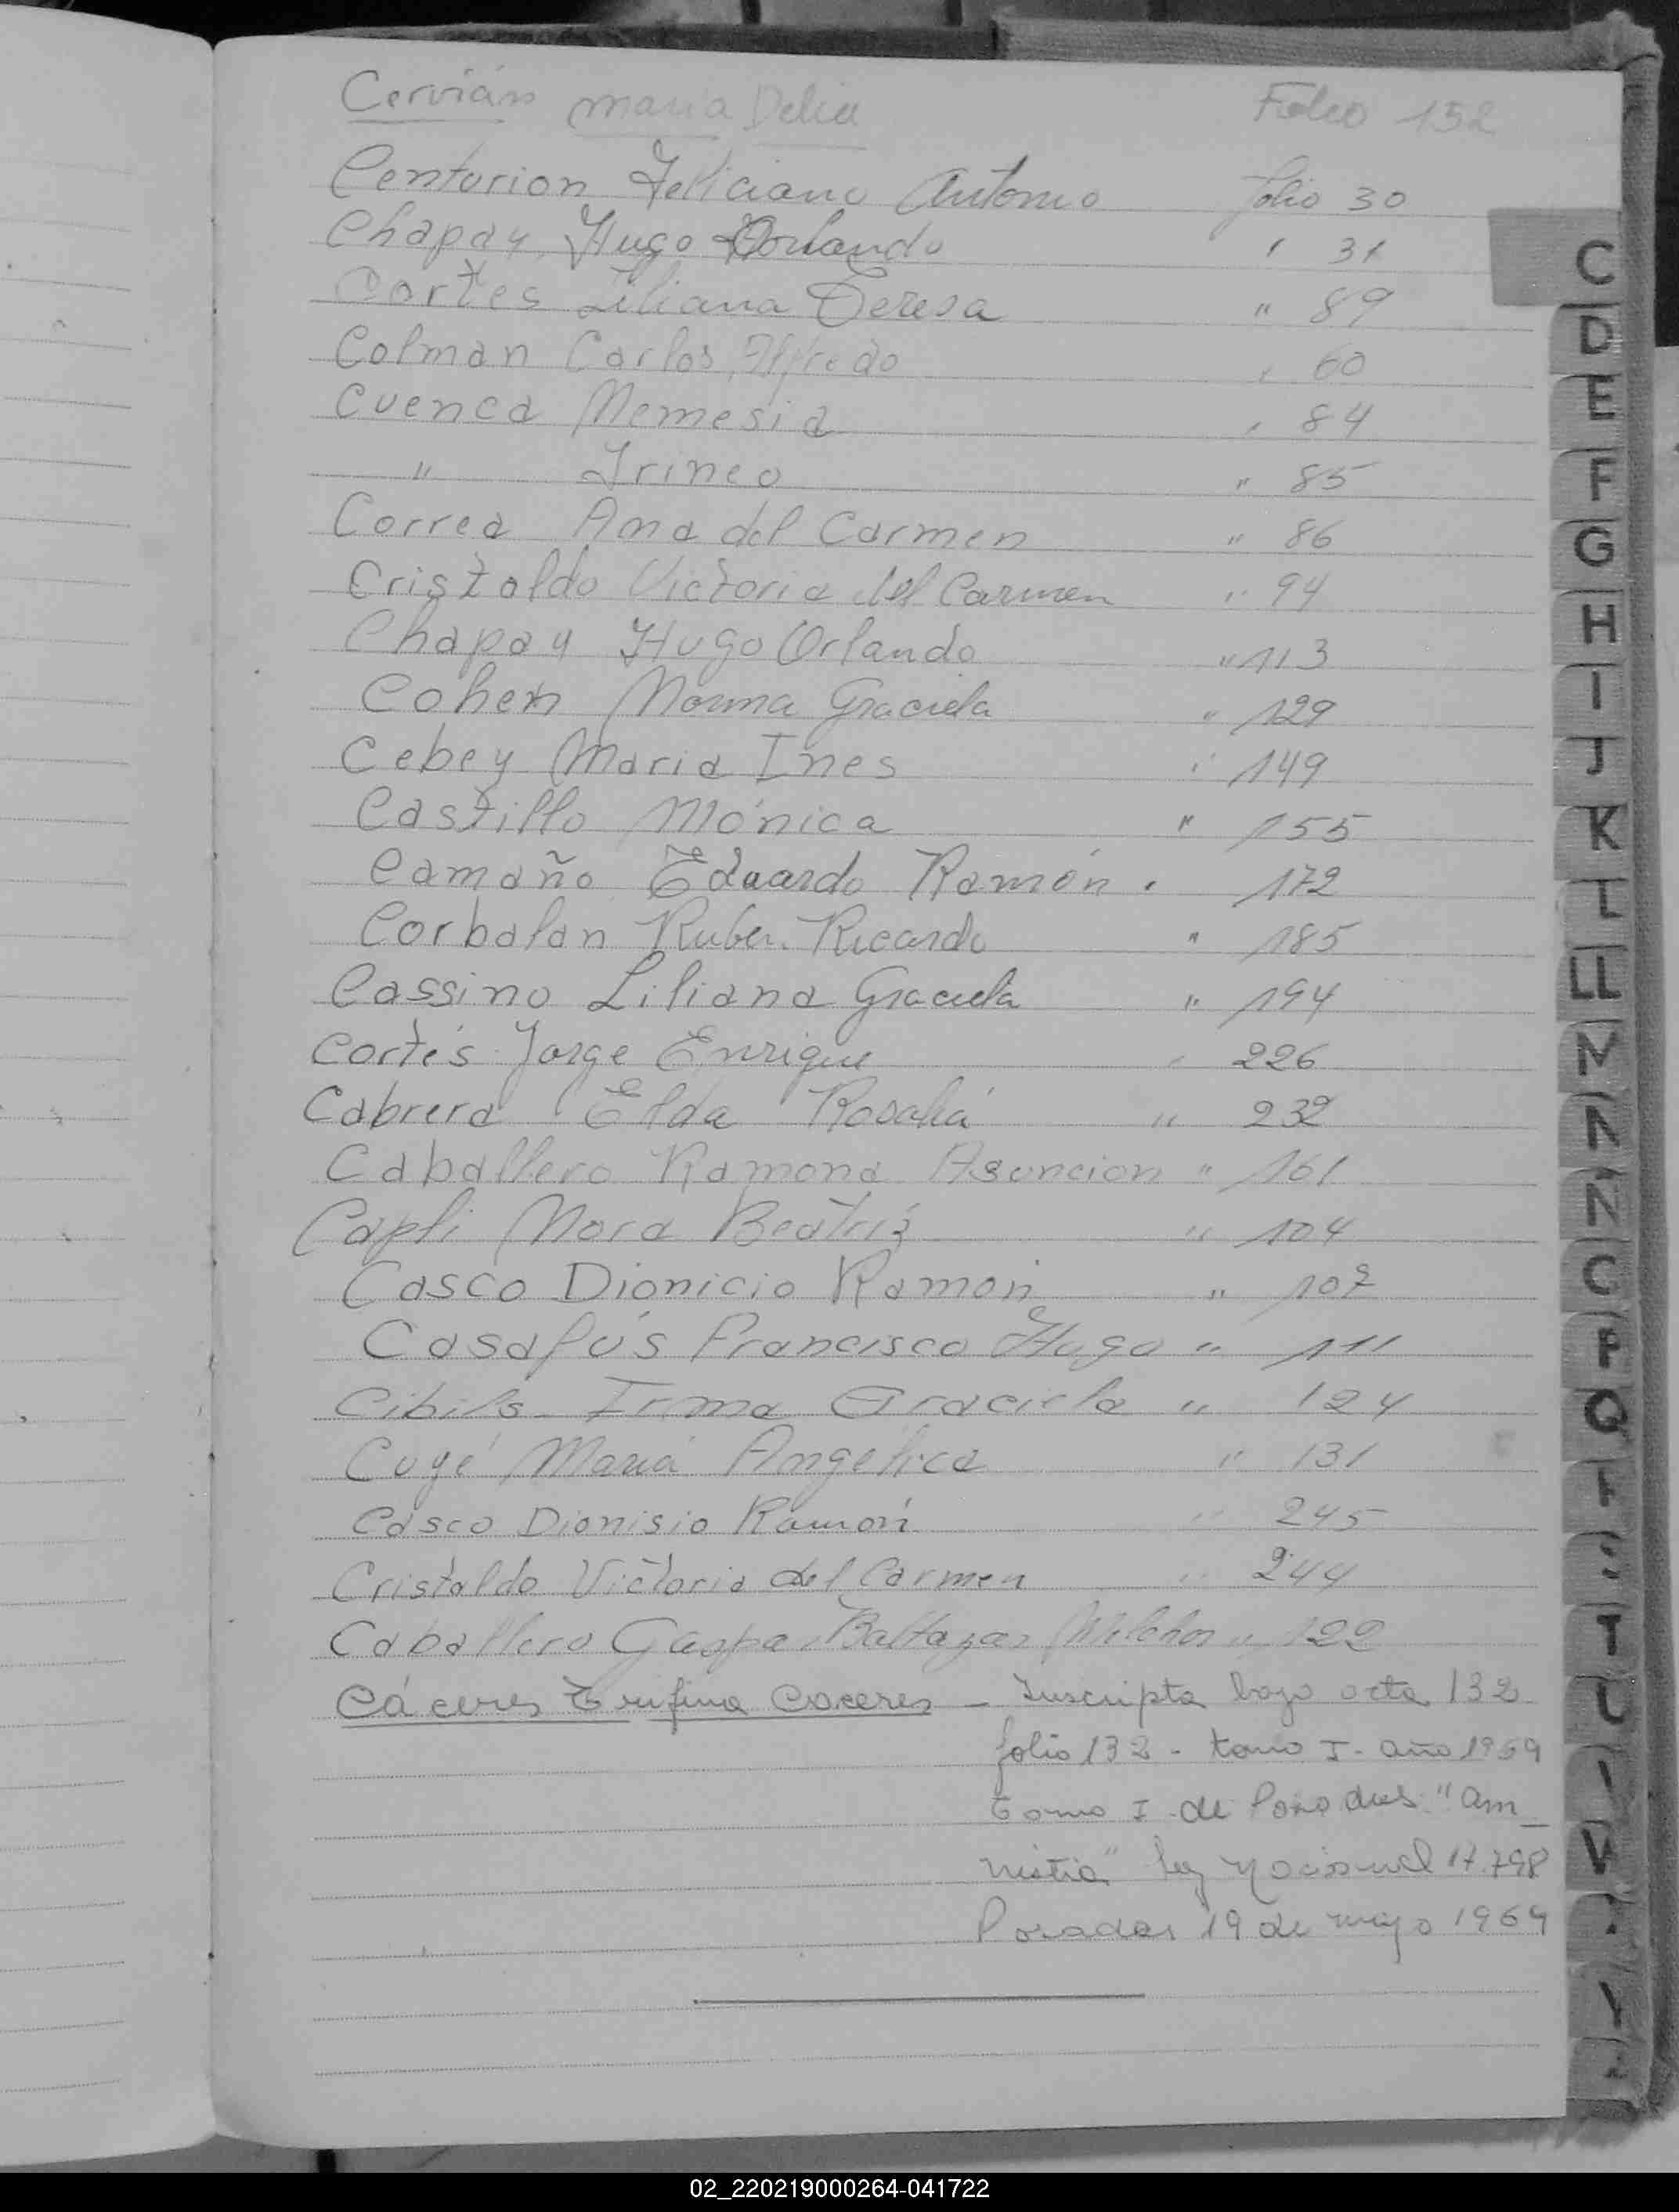 Cervián maria Delia Folio 152
Centurion Feliciano Antonio folio 30
Chapay, Hugo Orlando " 31
Cortes Liliana Teresa " 89
Colman Carlos Alfredo " 60
Cuenca Nemesia " 84
" Irineo " 85
Correa Ana del Carmen " 86
Cristaldo Victoria del Carmen " 94
Chapay Hugo Orlando " 113
Cohen Norma Graciela " 129
Cebey Maria Ines " 149
Castillo Mónica " 155
Camaño Eduardo Ramón " 172
Corbalan Ruben Ricardo " 185
Cassino Liliana Graciela " 194
Cortés Jorge Enrique " 226
Cabrera Elda Rosalía " 232
Caballero Ramona Asuncion " 161
Capli Nora Beatriz " 104
Casco Dionicio Ramon " 107
Casafús Francisco Hugo " 111
Cibils Irma Graciela " 124
Cuyé María Angélica " 131
Casco Dionisio Ramón " 245
Cristaldo Victoria del Carmen " 244
Caballero Gaspar Baltazar Melchor " 122
Cáceres Trufina Caceres - Inscripta bajo acta 132
folio 132 - tomo I - año 1969
tomo I de Posadas "am
nistia" ley nacional 17.798
Posadas 19 de mayo 1969
C
D
E
F
G
H
I
J
K
L
LL
M
N
P
Q
T
U
V
Y
02_220219000264-041722